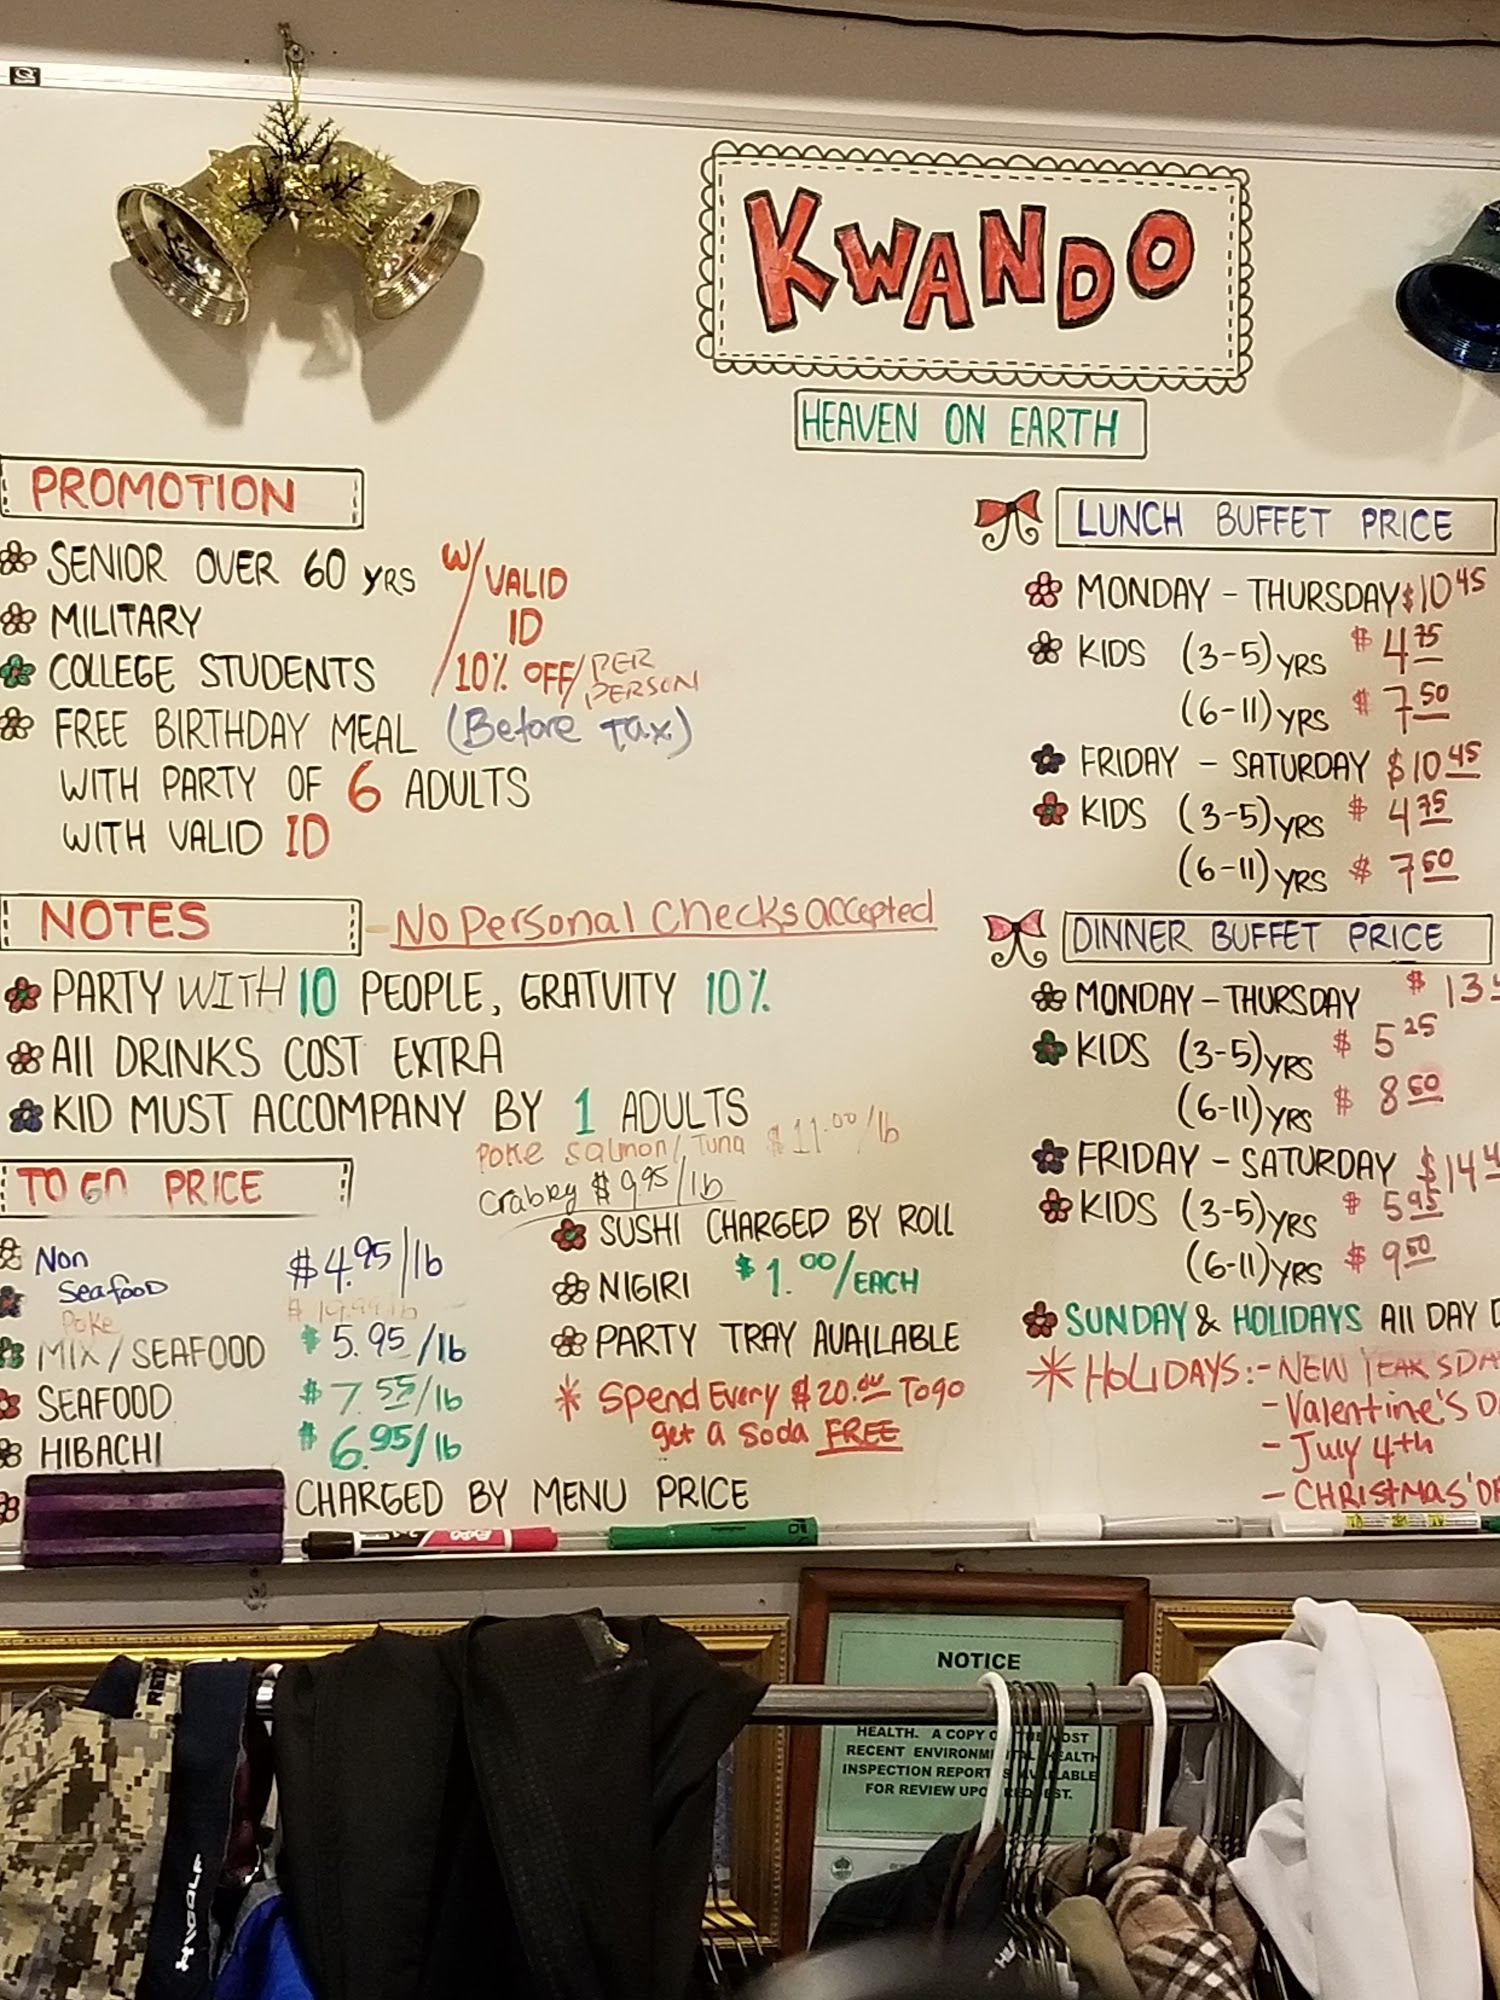 KWANDO
HEAVEN ON EARTH
PROMOTION
SENIOR OVER 60 YRS
MILITARY
COLLEGE STUDENTS
W/VALID
ID
10% OFF/PER
PERSON
FREE BIRTHDAY MEAL (Before Tax)
WITH PARTY OF 6 ADULTS
WITH VALID ID
NOTES - No Personal Checks accepted
PARTY WITH 10 PEOPLE, GRATUITY 10%
All DRINKS COST EXTRA
KID MUST ACCOMPANY BY 1 ADULTS
TO GO PRICE
Non
Seafood $4.95/lb
Poke
MIX/SEAFOOD $5.95/lb
SEAFOOD $7.55/lb
HIBACHI $6.95/lb
CHARGED BY MENU PRICE
Poke Salmon/Tuna $11.00/lb
Crabby $9.95/lb
SUSHI CHARGED BY ROLL
NIGIRI $1.00/EACH
PARTY TRAY AVAILABLE
* Spend Every $20.00 Togo
get a Soda FREE
LUNCH BUFFET PRICE
MONDAY - THURSDAY $10 45
KIDS (3-5) YRS $4 75
(6-11) YRS $7 50
FRIDAY - SATURDAY $10 45
KIDS (3-5) YRS $4 75
(6-11) YRS $7 50
DINNER BUFFET PRICE
MONDAY - THURSDAY $13
KIDS (3-5) YRS $5 25
(6-11) YRS $8 50
FRIDAY - SATURDAY $14
KIDS (3-5) YRS $5 95
(6-11) YRS $9 50
SUNDAY & HOLIDAYS All DAY
* HOLIDAYS: - NEW YEAR'S
- Valentine's
- July 4th
- CHRISTMAS'
EXPO
NOTICE
HEALTH. A COPY OF THE MOST
RECENT ENVIRONMENTAL HEALTH
INSPECTION REPORT IS AVAILABLE
FOR REVIEW UPON REQUEST.